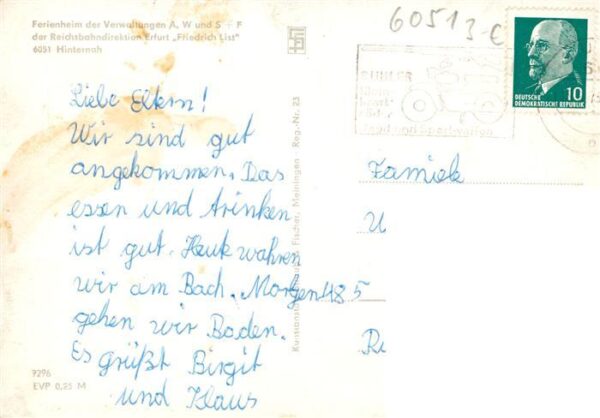 Ferienheim der Verwaltungen A, W und S + F
der Reichsbahndirektion Erfurt „Friedrich List"
6051 Hinternah
60513 C
SUHLER
Jagd- und Sportwaffen
DEUTSCHE
DEMOKRATISCHE REPUBLIK
10
Liebe Eltern!
Wir sind gut
angekommen. Das
essen und trinken
ist gut. Heute wahren
wir am Bach. Morgen
gehen wir Baden.
Es grüßt Birgit
und Klaus
Familie
U
485
R
Fischer, Meiningen Reg.-Nr. 23
9296
EVP 0,25 M